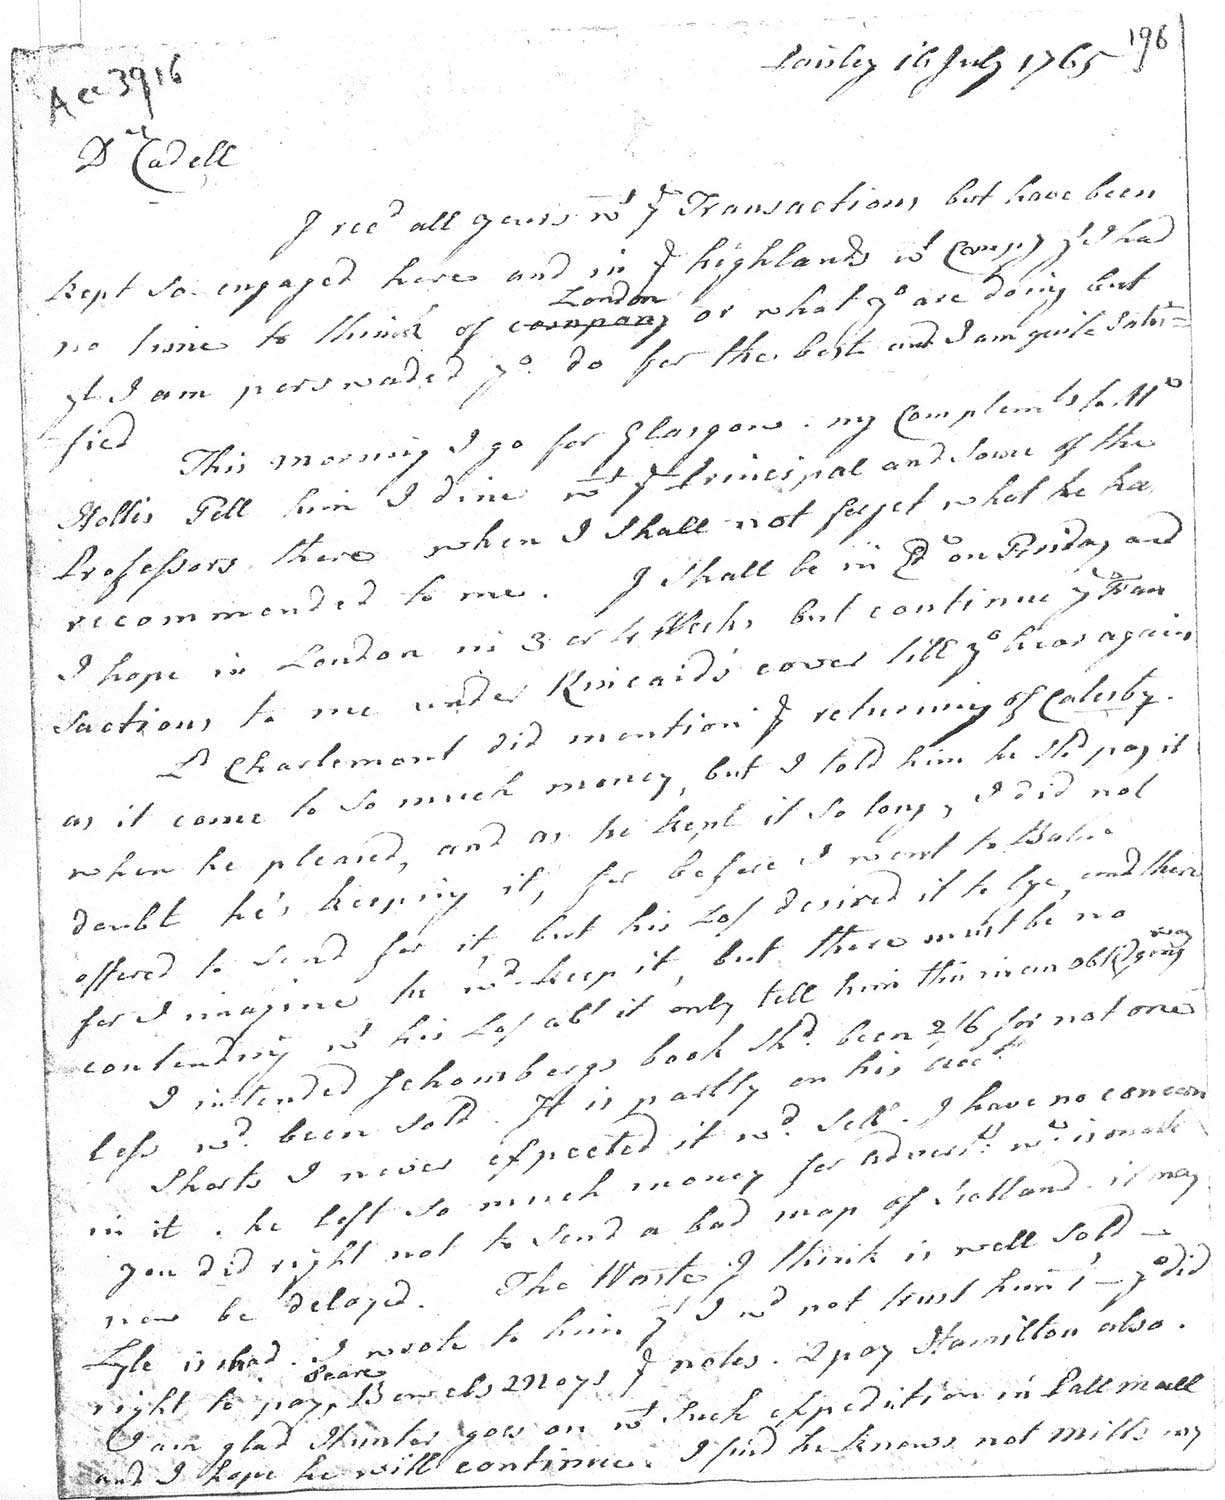 196
Acc 3916
Paisley 16 July 1765
Dr Cadell
I recd all yours wt ye Transactions but have been
kept so engaged here and in ye highlands wt Compy yt I had
no time to think of company London or what yo are doing but
yt I am perswaded yo. do for the best and I am quite satis=
fied
This morning I go for Glasgow. my Complemts to Mr
Hollis Tell him I dine wt ye Principal and Some of the
Professors there when I Shall not forget what he has
recommended to me. I Shall be in Edr on Friday and
I hope in London in 3 or 4 Weeks but continue ye Tran
sactions to me under Kincaid's cover till yo hear again
Ld Charlemont did mention ye returning of Catesby.
as it came to so much money, but I told him he Shd pay it
when he pleased, and as he kept it so long, I did not
doubt he's keeping it, for before I went to Bath
offered to Send for it, but his Lop desired it to lye, and there
for I imagine he wd keep it, but there must be no
contending wt his Lop abt it only tell him this in an obliging way
I intended Schombergs book Shd. been 2/6 for not one
less wd. been Sold. It is partly on his acct.
Shorts I never expected it wd. Sell. I have no concern
in it. he left so much money for advertg. wch. is made
you did right not to Send a bad map of Scotland. it may
now be delayed. The Waste I think is well Sold —
Lyle is bad. I wrote to him yt I wd not trust him — yo did
right to pay, Peare Bowels & Noys ye notes. & pay Hamilton also.
I am glad Hunter goes on wt Such expedition in Pall mall
and I hope he will continue. I find he knows not mills my